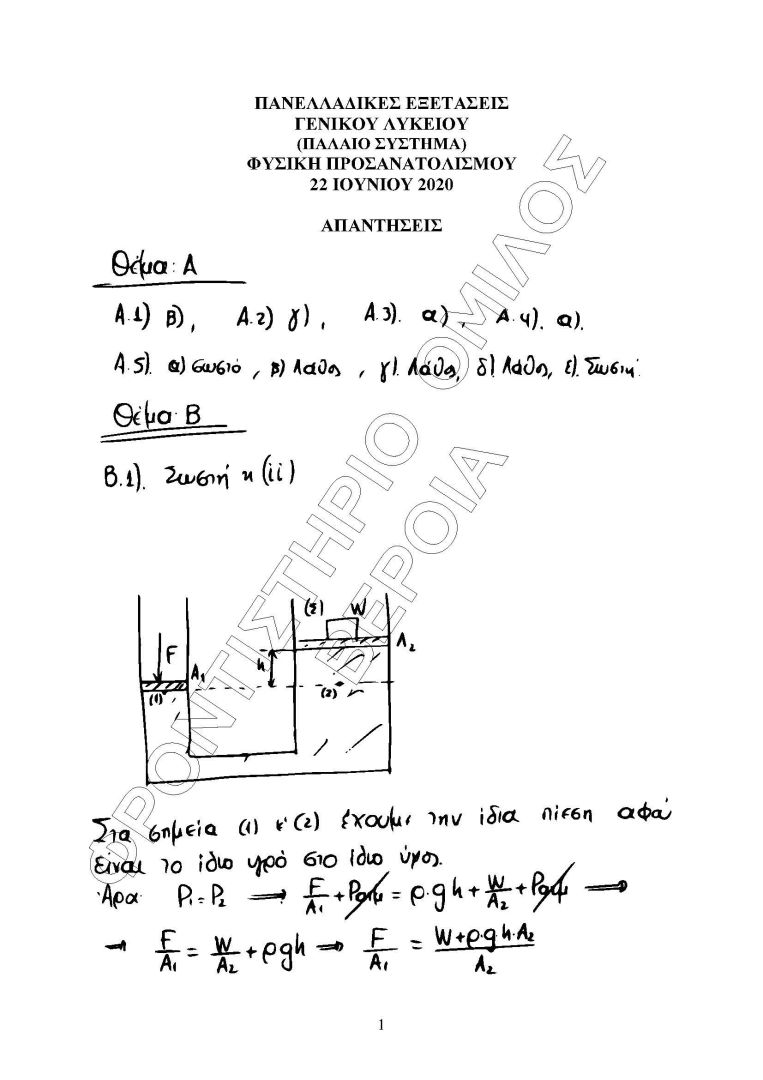 ΠΑΝΕΛΛΑΔΙΚΕΣ ΕΞΕΤΑΣΕΙΣ
ΓΕΝΙΚΟΥ ΛΥΚΕΙΟΥ
(ΠΑΛΑΙΟ ΣΥΣΤΗΜΑ)
ΦΥΣΙΚΗ ΠΡΟΣΑΝΑΤΟΛΙΣΜΟΥ
22 ΙΟΥΝΙΟΥ 2020
ΑΠΑΝΤΗΣΕΙΣ
Θέμα: Α
Α.1) β), Α.2) γ), Α.3). α), Α.4). α).
Α.5). α) Σωστό, β) Λάθος, γ). Λάθος, δ) Λάθος, ε). Σωστή.
Θέμα: Β
Β.1). Σωστή η (ii)
(Σ) W
A₂
F
h
A₁
(1) (2)
Στα σημεία (1) κ' (2) έχουμε την ίδια πίεση αφού
είναι το ίδιο υγρό στο ίδιο ύψος.
Άρα P₁ = P₂ ⟹ F/A₁ + Pατμ = ρ·g h + W/A₂ + Pατμ ⟹
⟹ F/A₁ = W/A₂ + ρgh ⟹ F/A₁ = (W+ρ·g·h·A₂)/A₂
1
ΦΡΟΝΤΙΣΤΗΡΙΟ ΟΜΙΛΟΣ
ΒΕΡΟΙΑ